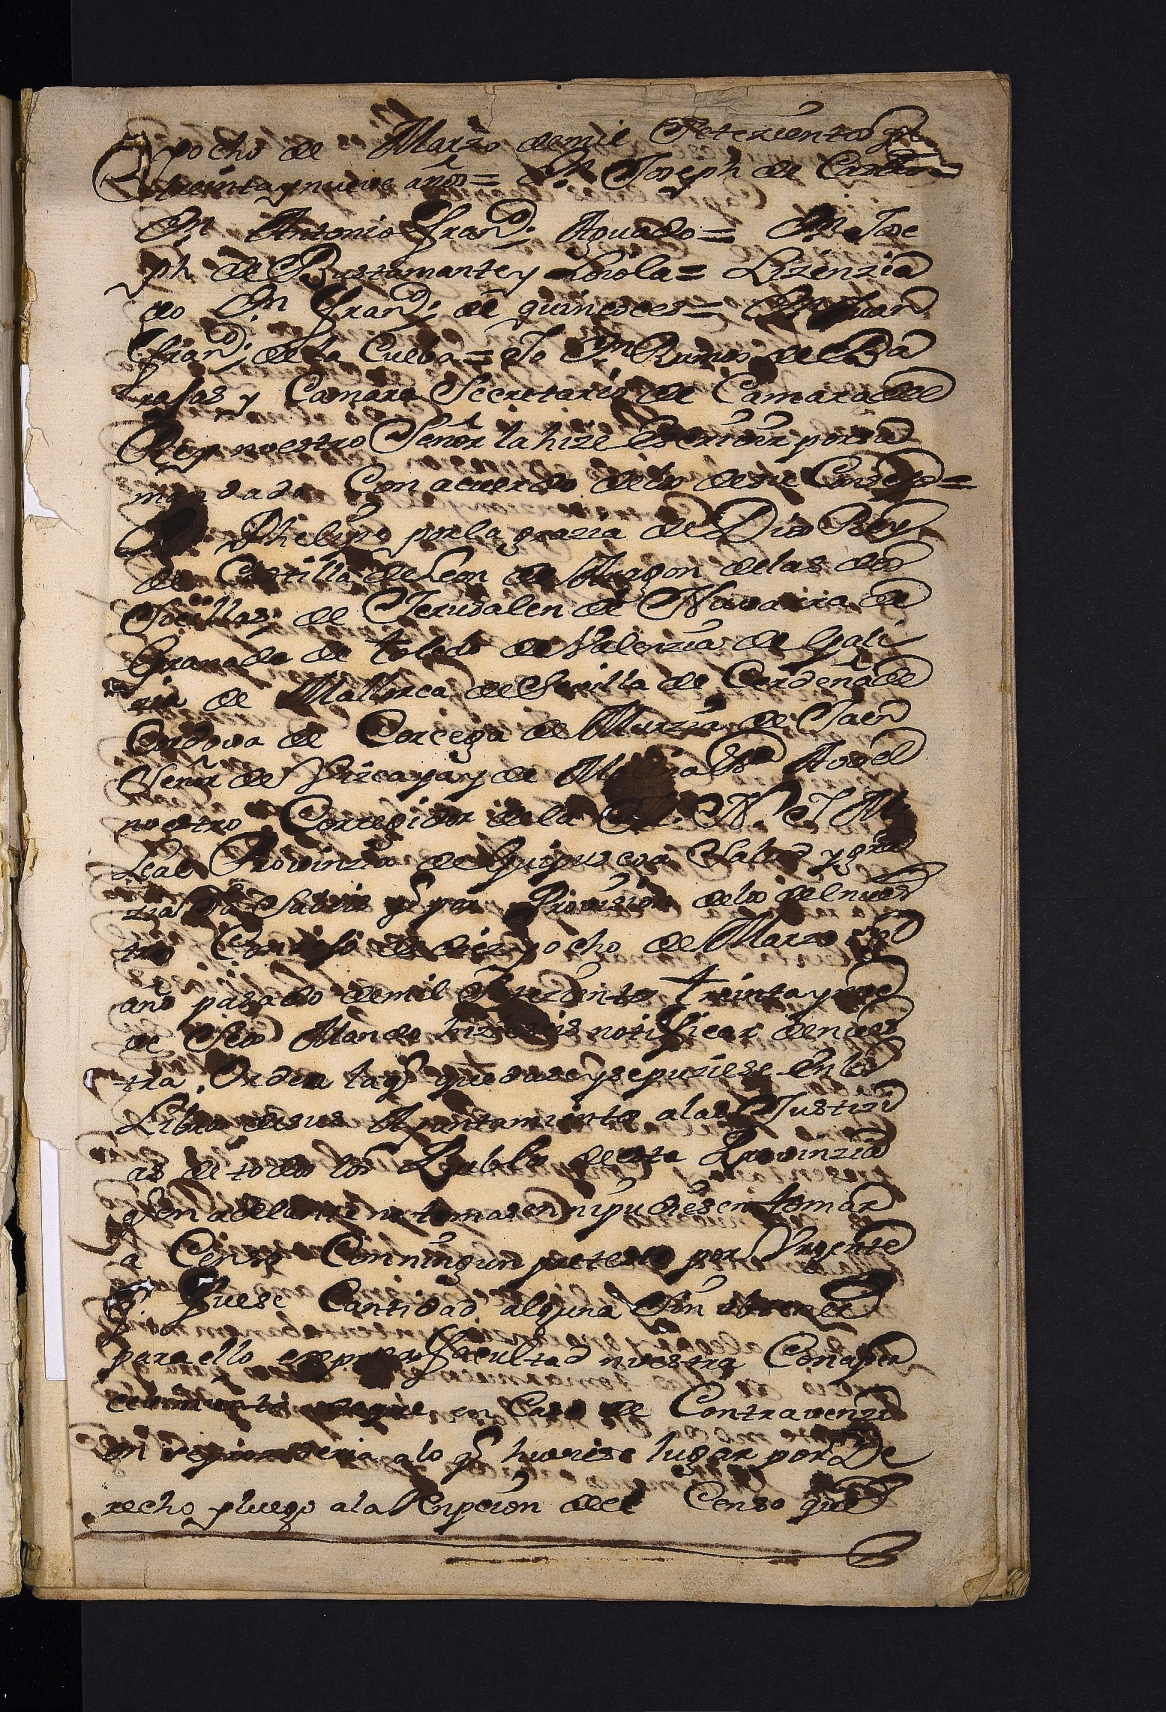 y ocho de Marzo demil Setezientos y
treinta y nueve años = Dn Joseph de Castro =
Dn Antonio Franco. Aguado = Dn Jose
ph de Bustamante y Loiola = Lizenzia
do Dn Franco. de quincoces = Dn Juan
Franco. de la Cueba = Yo Dn Ramos de Ba
rajas y Camara Secretario de Camara del
Rey nuestro Señor la hize escrivir por su
mandado Con acuerdo delos de su Consejo =
Dn Phelipe por la grazia de Dios Rey
de Castilla de Leon de Aragon delas dos
Sicilias de Jerusalen de Navarra de
Granada de toledo de Valenzia de Gali
zia de Mallorca de Sevilla de Cerdeña de
Cordova de Corcega de Murzia de Jaen
Señor de Vizcaya y de Molina &a Avos el
nuestro Corregidor dela M. N. Y M.
Leal Provinzia de Guipuscoa Salud y gra
zia Saveis q por Provision delos del nues
tro Consejo de diez y ocho de Marzo del
año pasado demil Setezientos treinta y nue
ve Seos Mando hizieseis notificar de nues
tra Orden la q quedase y se pusiese en los
Libros desus Ayuntamientos alas Justizi
as de todos los Pueblos de esta Provinzia
q en adelante no tomasen ni pudiesen tomar
a Censo Con ningun pretesto por Urgente
q fuese Cantidad alguna Sin obtener
para ello expresa facultad nuestra Conaper
cevimiento que en Caso de Contravenzi
on seprozederia alo q huviese lugar por De
recho y luego ala Redempcion del Censo que